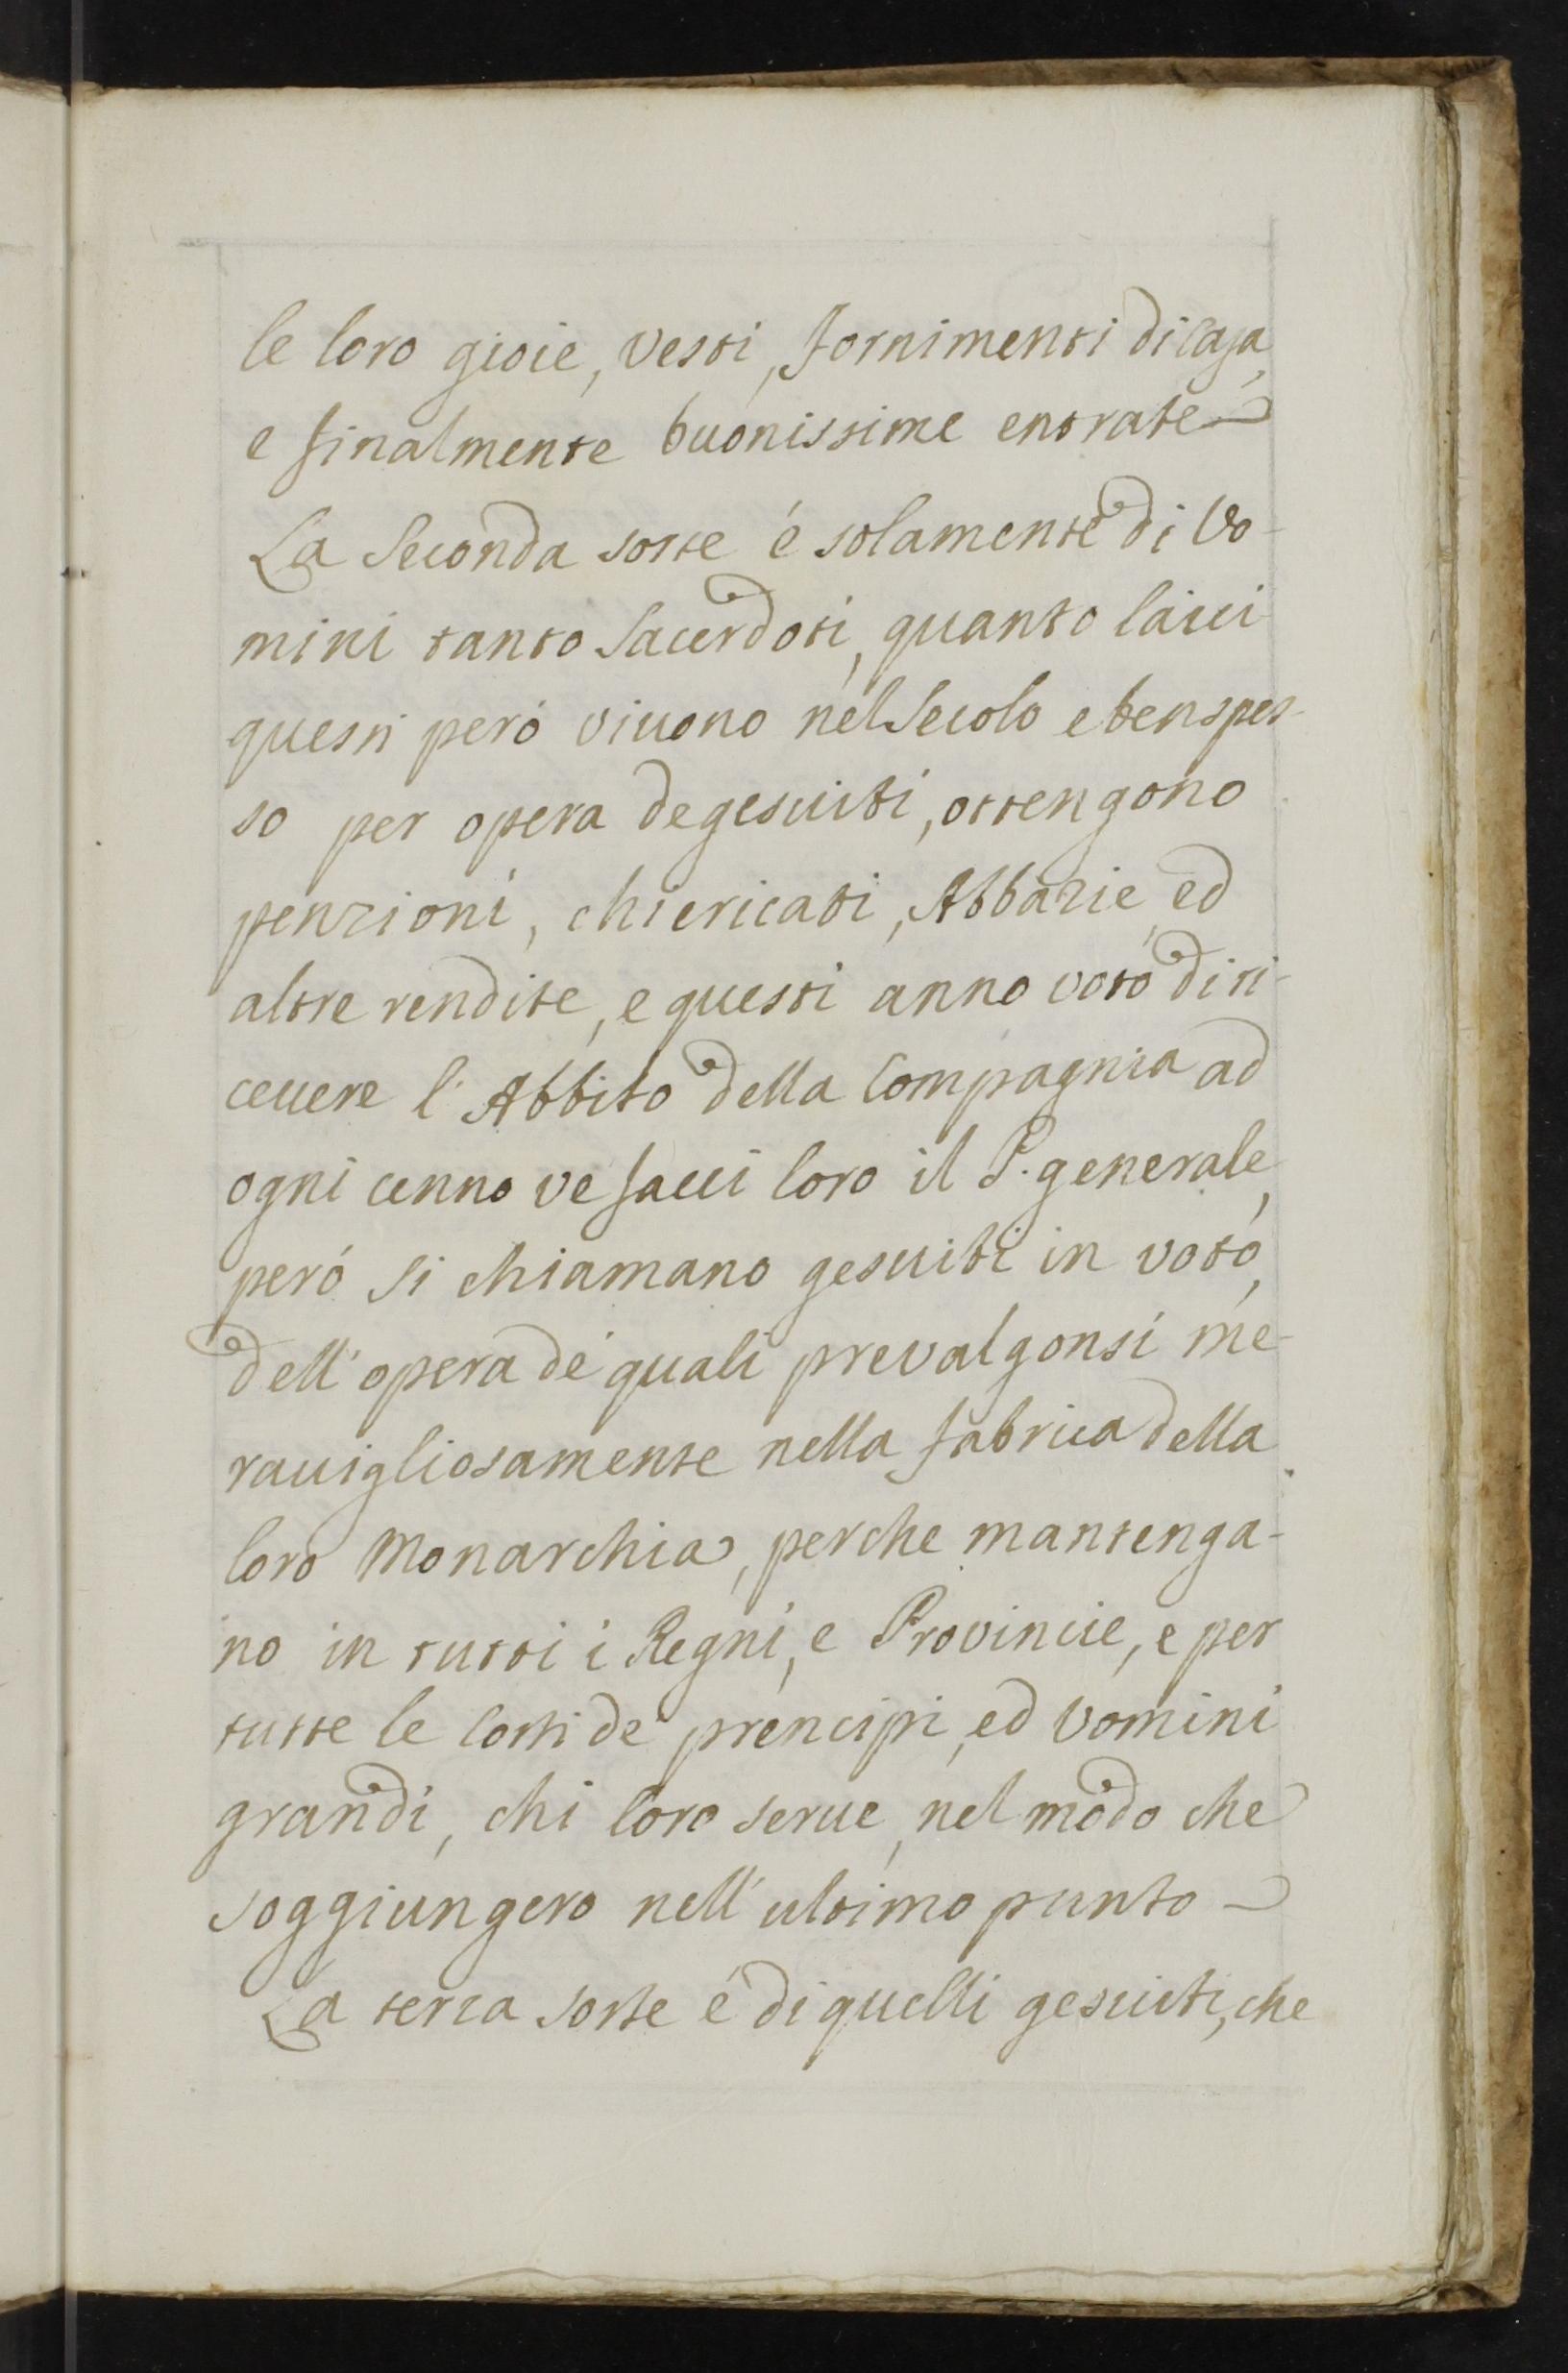 le loro gioie, vesti, fornimenti di casa,
e finalmente buonissime entrate
La Seconda sorte é solamente di Vo-
mini tanto Sacerdoti, quanto laici
questi peró viuono nel Secolo e benspes-
so per opera de gesuiti, ottengono
penzioni, chiericati, Abbazie, ed
altre rendite, e questi anno voto di ri-
ceuere l'Abbito della Compagnia ad
ogni cenno ve facci loro il P. generale,
peró si chiamano gesuiti in voto,
dell'opera de' quali prevalgonsi me-
rauigliosamente nella fabrica della
loro Monarchia, perche mantenga-
no in tutti i Regni, e Provincie, e per
tutte le Corti de' prencipi, ed Vomini
grandi, chi loro serue, nel modo che
soggiungero nell'ultimo punto
La terza sorte é di quelli gesuiti, che